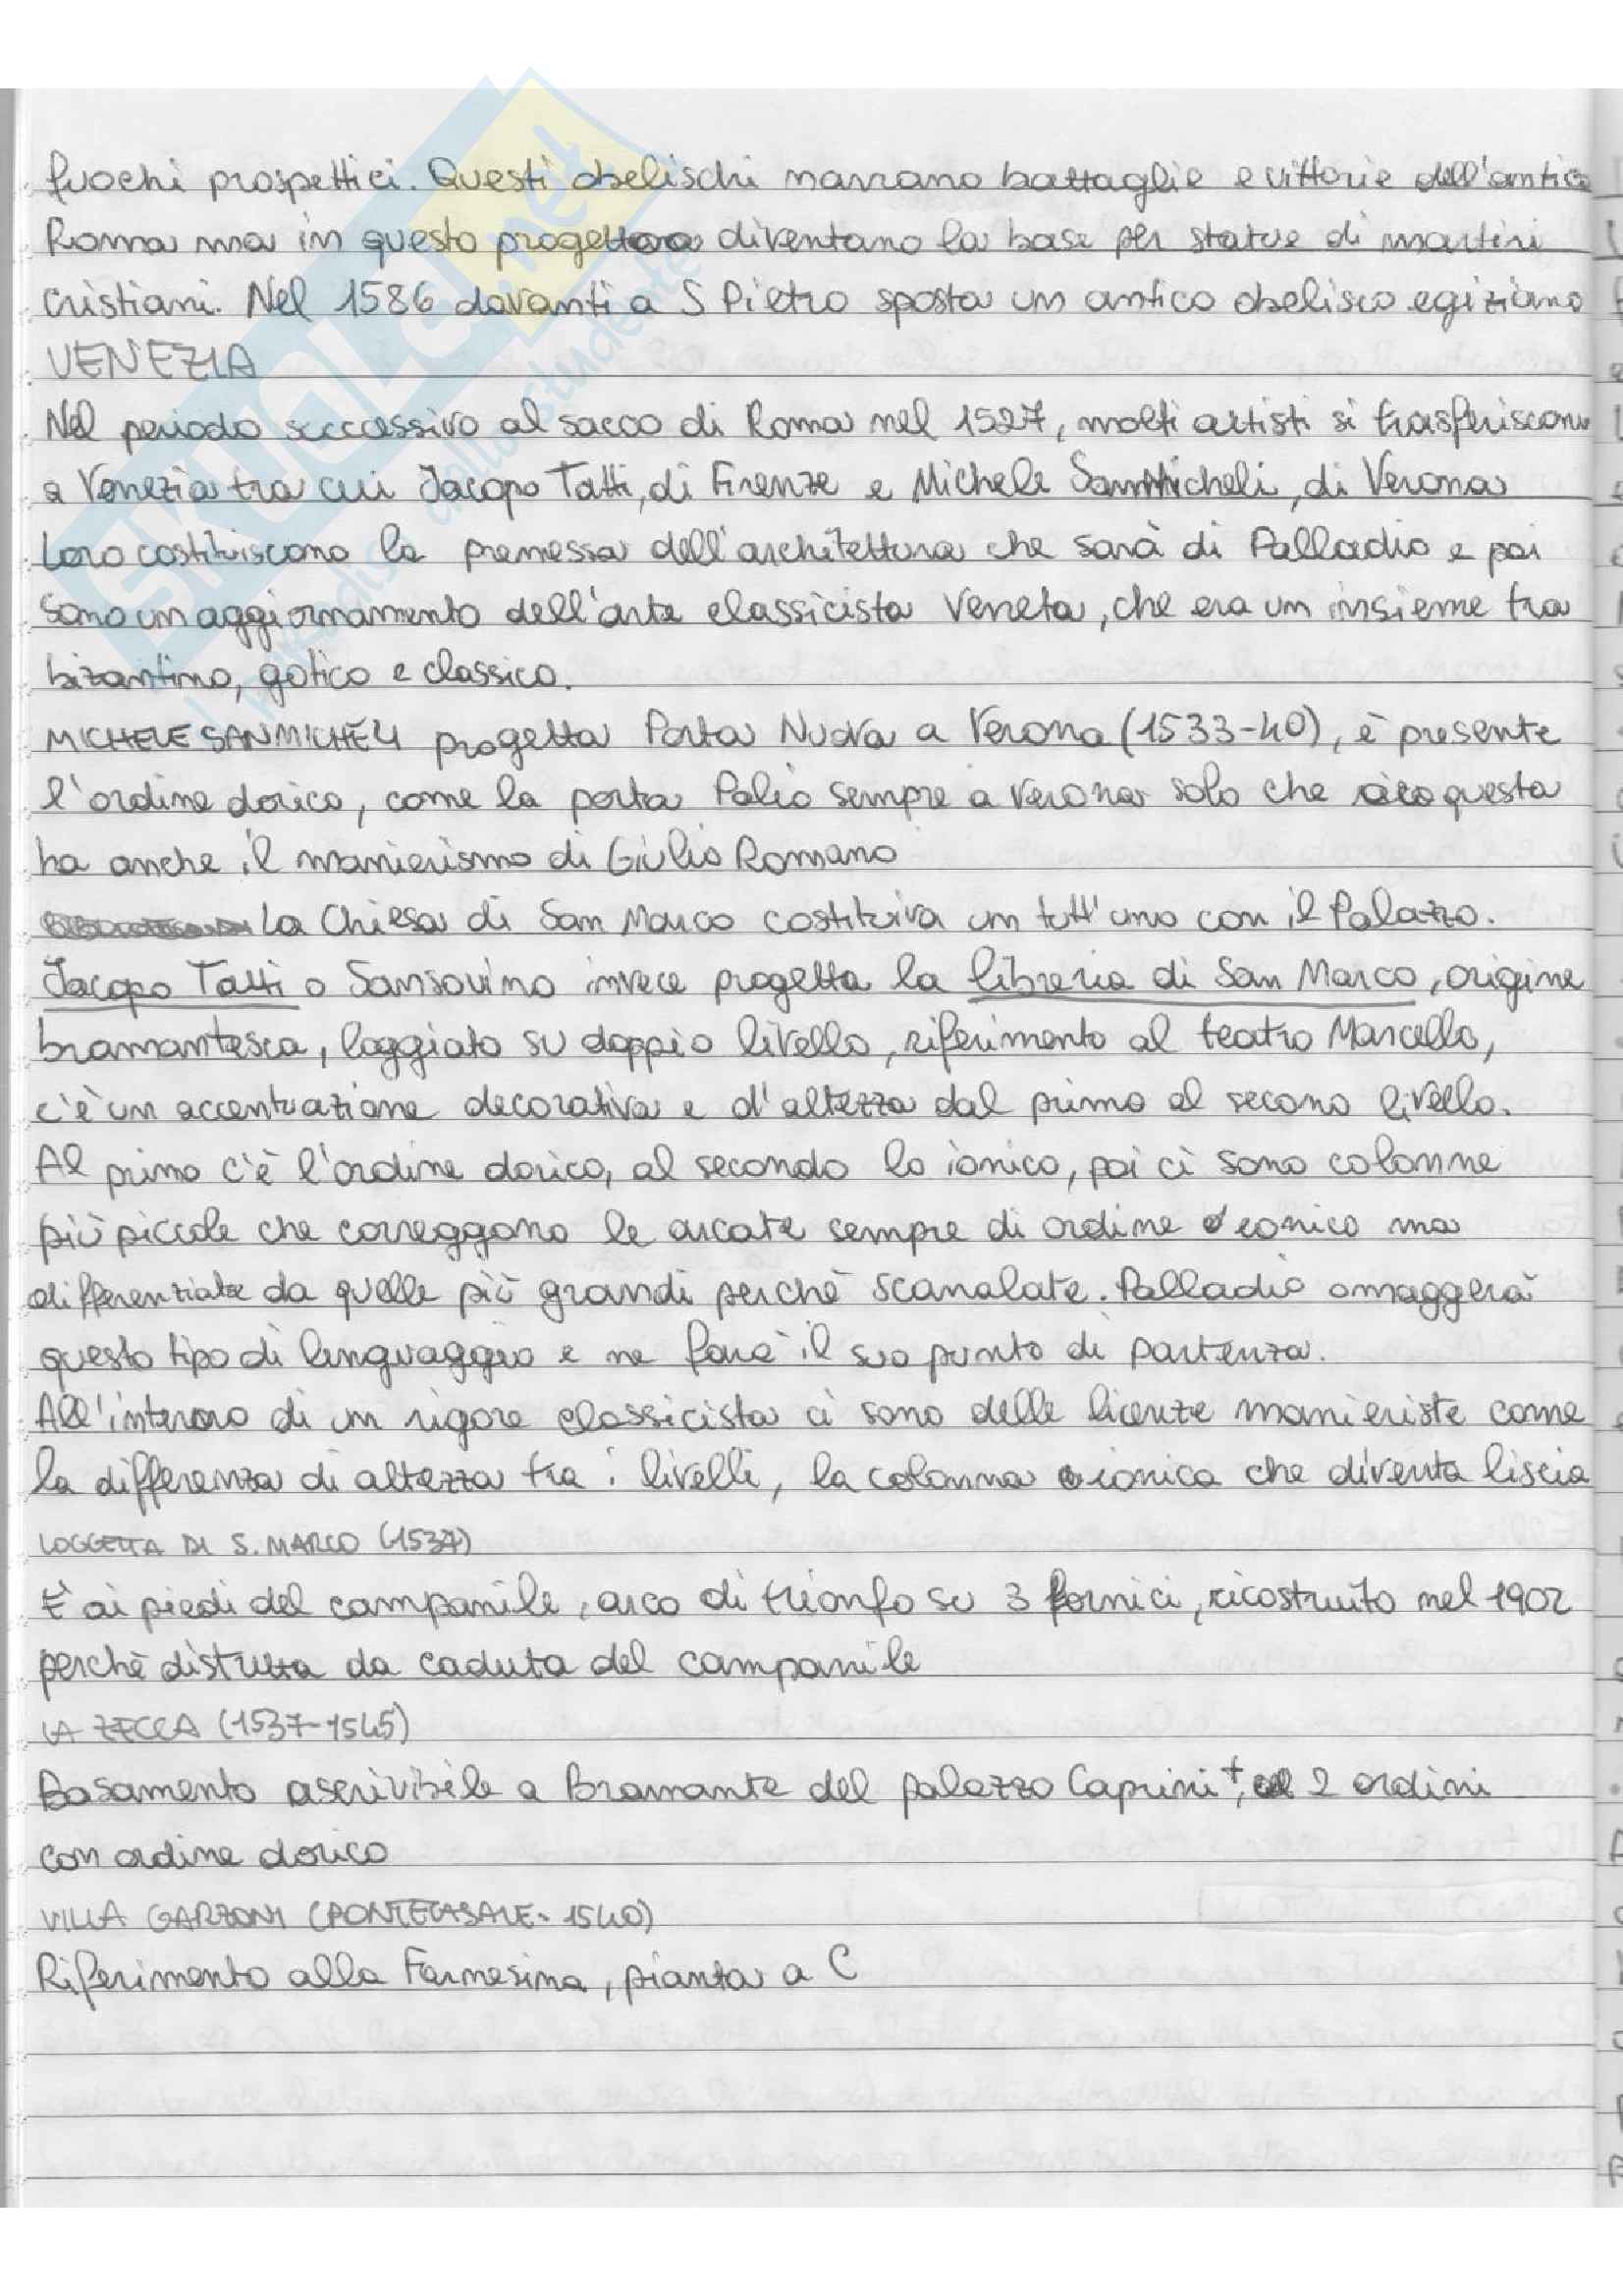 fuochi prospettici. Questi obelischi narrano battaglie e vittorie dell'antica
Roma ma in questo progetto diventano la base per statue di martiri
cristiani. Nel 1586 davanti a S Pietro sposta un antico obelisco egiziano
VENEZIA
Nel periodo successivo al sacco di Roma nel 1527, molti artisti si trasferiscono
a Venezia tra cui Jacopo Tatti, di Firenze e Michele Sanmicheli, di Verona
Loro costituiscono la premessa dell'architettura che sarà di Palladio e poi
sono un aggiornamento dell'arte classicista Veneta, che era un insieme tra
bizantino, gotico e classico.
MICHELE SANMICHELI progetta Porta Nuova a Verona (1533-40), è presente
l'ordine dorico, come la porta Palio sempre a Verona solo che questa
ha anche il manierismo di Giulio Romano
La Chiesa di San Marco costituiva un tutt'uno con il Palazzo.
Jacopo Tatti o Sansovino invece progetta la libreria di San Marco, origine
bramantesca, loggiato su doppio livello, riferimento al teatro Marcello,
c'è un accentuazione decorativa e d'altezza dal primo al secono livello.
Al primo c'è l'ordine dorico, al secondo lo ionico, poi ci sono colonne
più piccole che correggono le arcate sempre di ordine ionico ma
differenziate da quelle più grandi perchè scanalate. Palladio omaggerà
questo tipo di linguaggio e ne farà il suo punto di partenza.
All'interno di un rigore classicista ci sono delle licenze manieriste come
la differenza di altezza tra i livelli, la colonna ionica che diventa liscia
LOGGETTA DI S. MARCO (1537)
È ai piedi del campanile, arco di trionfo su 3 fornici, ricostruito nel 1902
perchè distrutta da caduta del campanile
LA ZECCA (1537-1545)
Basamento ascrivibile a Bramante del palazzo Caprini +, 2 ordini
con ordine dorico
VILLA GARZONI (PONTECASALE - 1540)
Riferimento alla Farnesina, pianta a C
SKUOLA.net